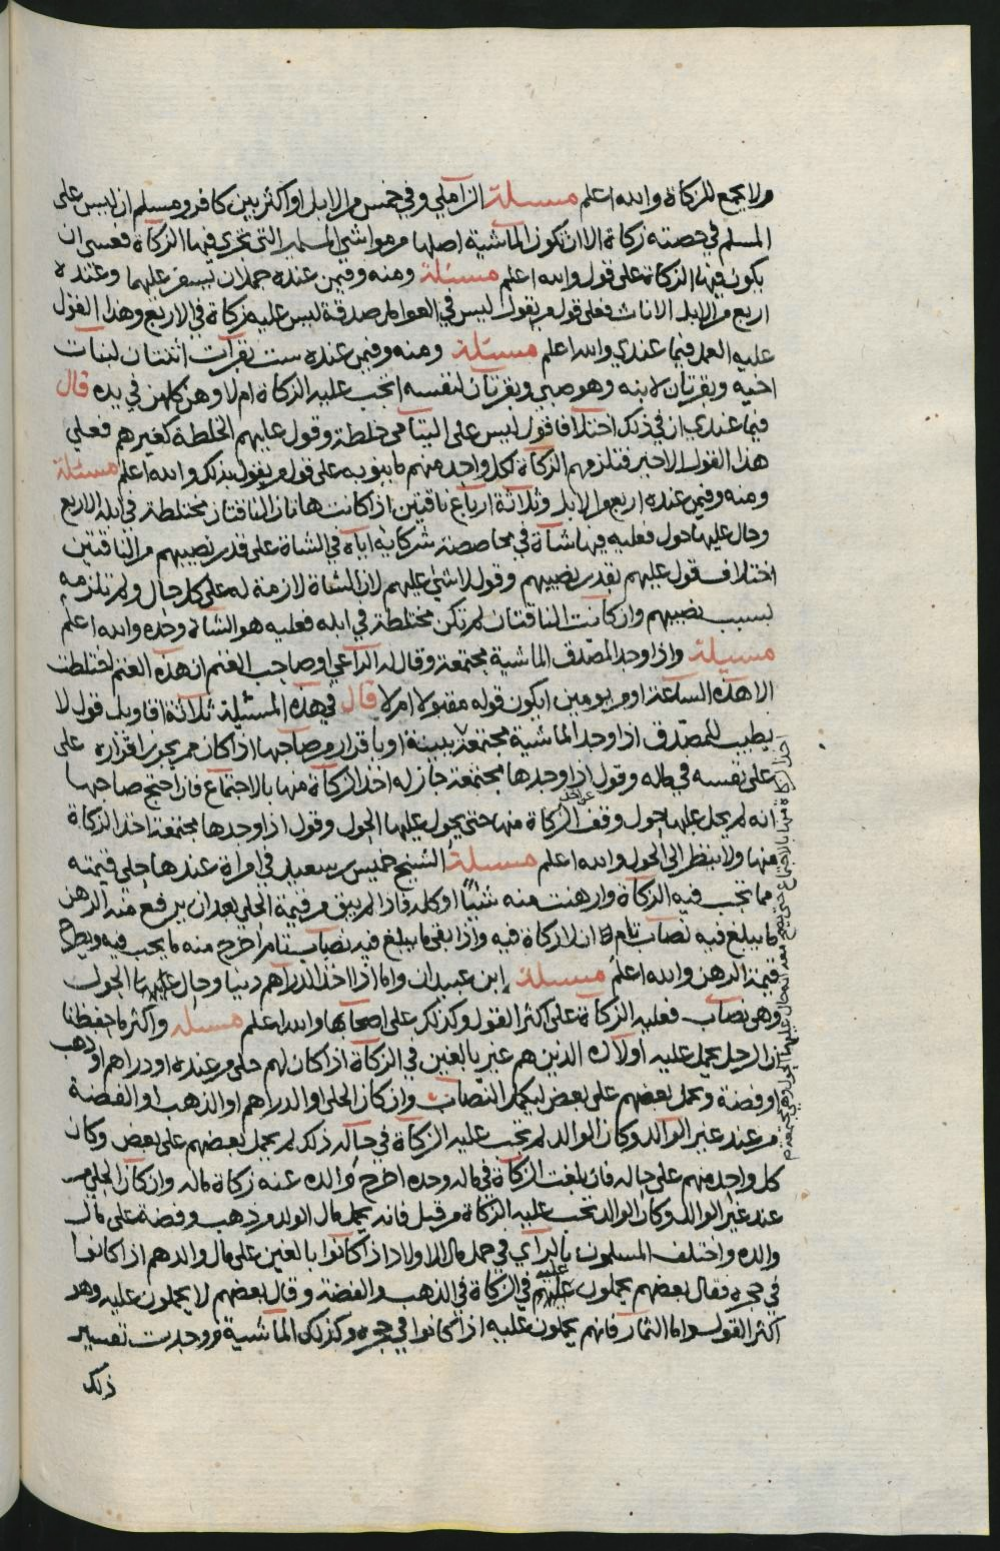 ولا يجمع للزكاة والله اعلم مسئلة الزاملي وفي خمس من الابل او اكثر بين كافر ومسلم ان ليس على
المسلم في حصته زكاة الا ان تكون الماشية اصلها من مواشي المسلمين التي تجري فيها الزكاة فعسى ان
يكون فيها الزكاة على قول والله اعلم مسئلة ومنه وفيمن عنده جملان يسفر عليهما وعنده
اربع من الابل الاناث فعلى قول من يقول ليس في العوامل صدقة ليس عليه زكاة في الاربع وهذا القول
عليه العمل فيما عندي والله اعلم مسئلة ومنه وفيمن عنده ست بقرات اثنتان لبنات
اخيه وبقرتان لابنه وهو صبي وبقرتان لنفسه اتجب عليه الزكاة ام لا وهن كلهن في يده قال
فيما عندي ان في ذلك اختلافا قول ليس على اليتامى خلطة وقول عليهم الخلطة كغيرهم فعلى
هذا القول الاخير فتلزمهم الزكاة لكل واحد منهم ما ينوبه على قول من يقول بذلك والله اعلم مسئلة
ومنه وفيمن عنده اربع من الابل وثلاثة ارباع ناقتين اذا كانت هاتان الناقتان مختلطة في ابله الاربع
وحال عليها حول فعليه فيها شاة في محاصصة شركائه اياه في الشاة على قدر نصيبهم من الناقتين
اختلاف قول عليهم بقدر نصيبهم وقول لا شيء عليهم لان الشاة لازمة له على كل حال ولم تلزمه
بسبب نصيبهم وان كانت الناقتان لم تكن مختلطة في ابله فعليه هو الشاة وحده والله اعلم
مسئلة واذا وجد المصدق الماشية مجتمعة وقال له الراعي او صاحب الغنم ان هذه الغنم اختلطت
الا هذه الساعة او من يومين ايكون قوله مقبولا ام لا قال في هذه المسئلة ثلاثة اقاويل قول لا
يطيب للمصدق اذا وجد الماشية مجتمعة ببينة او باقرار من صاحبها اذا كان ممن يجوز اقراره على
على نفسه في ماله وقول اذا وجدها مجتمعة جاز له اخذ الزكاة منها بالاجتماع فان احتج صاحبها
انه لم يحل عليها حول وقف عن اخذ الزكاة منها حتى يحول عليها الحول وقول اذا وجدها مجتمعة اخذ الزكاة
منها ولا ينظر الى الحول والله اعلم مسئلة الشيخ خميس بن سعيد في امراة عندها حلي قيمته
مما تجب فيه الزكاة وارهنت منه شيئا او كله فاذا لم يبق من قيمة الحلي بعد ان يرفع منه الرهن
ما يبلغ فيه نصاب تام انه لا زكاة فيه واذا بقي ما يبلغ فيه نصاب تام اخرج منه ما يجب فيه ويطرح
قيمة الرهن والله اعلم مسئلة ابن عبيدان واما اذا اخذ الدراهم دينا وحال عليها الحول
وهي نصاب فعليه الزكاة على اكثر القول وكذلك على اصحابها والله اعلم مسئلة واكثر ما حفظنا
ان الرجل يحمل عليه اولاده الذين هم غير بالغين في الزكاة اذا كان لهم حلي من عنده او دراهم او ذهب
او فضة ويحمل بعضهم على بعض ليكمل النصاب وان كان الحلي او الدراهم او الذهب او الفضة
من عند غير الوالد وكان الوالد لم تجب عليه الزكاة في حاله ذلك لم يحمل بعضهم على بعض وكان
كل واحد منهم على حاله فان بلغت الزكاة في ماله وحده اخرج والده عنه زكاة ماله وان كان الحلي من
عند غير الوالد وكان الوالد تجب عليه الزكاة من قبل فانه يحمل مال الولد من ذهب وفضة على مال
والده واختلف المسلمون بالراي في حمل مال الاولاد اذا كانوا بالغين على مال والدهم اذا كانوا
في حجره فقال بعضهم يحملون عليه في الزكاة في الذهب والفضة وقال بعضهم لا يحملون عليه وهو
اكثر القول واما الثمار فانهم يحملون عليه اذا كانوا في حجره وكذلك الماشية ووجدت تفسير
ذلك